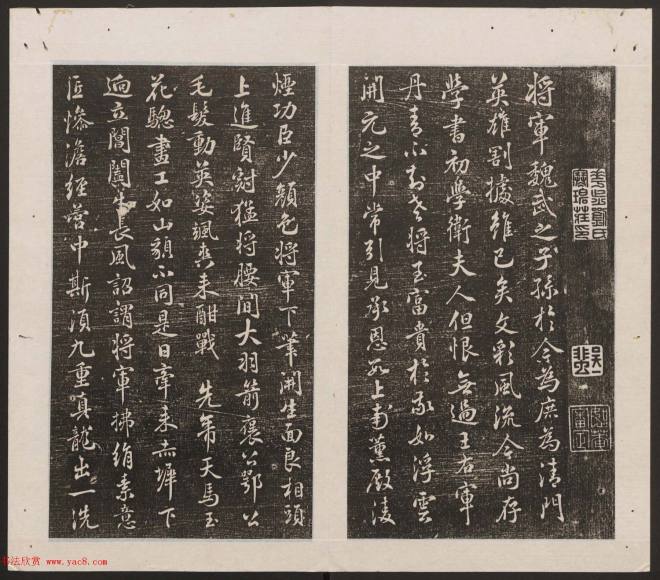 将軍魏武之子孫於今為庶為清門
英雄割據雖已矣文彩風流今尚存
學書初學衛夫人但恨無過王右軍
丹青不知老将至富貴於我如浮雲
開元之中常引見承恩數上南薰殿淩
煙功臣少顏色将軍下筆開生面良相頭
上進賢冠猛将腰間大羽箭褒公鄂公
毛髮動英姿颯爽来酣戰 先帝天馬玉
花驄畫工如山貌不同是日牽来赤墀下
迥立閶闔生長風詔謂将軍拂絹素意
匠慘澹經營中斯須九重真龍出一洗
书法欣赏 www.yac8.com